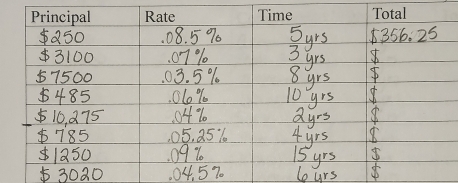 Principal Rate Time Total
$250 .08.5% 5 yrs $356.25
$3100 .07% 3 yrs $
$7500 .03.5% 8 yrs $
$485 .06% 10 yrs $
$10,275 .04% 2 yrs $
$785 .05.25% 4 yrs $
$1250 .09% 15 yrs $
$3020 .04.5% 6 yrs $